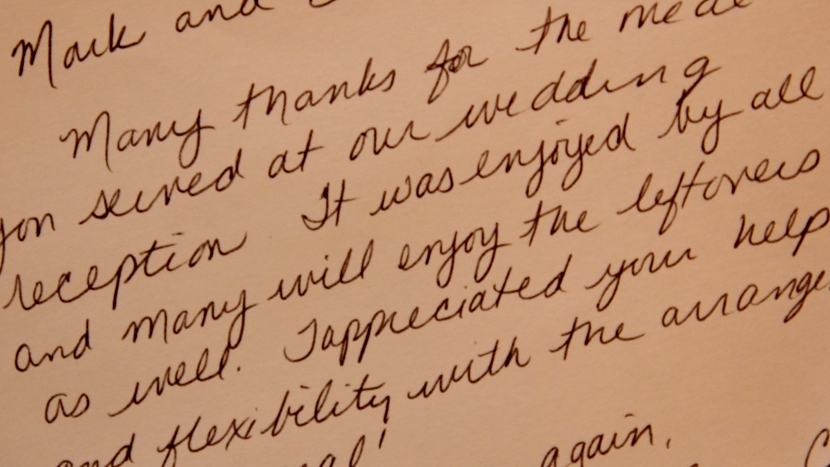 Mark and
Many thanks for the
you served at our wedding
reception It was enjoyed by all
and many will enjoy the leftovers
as well. I appreciated your help
and flexibility with the
again,